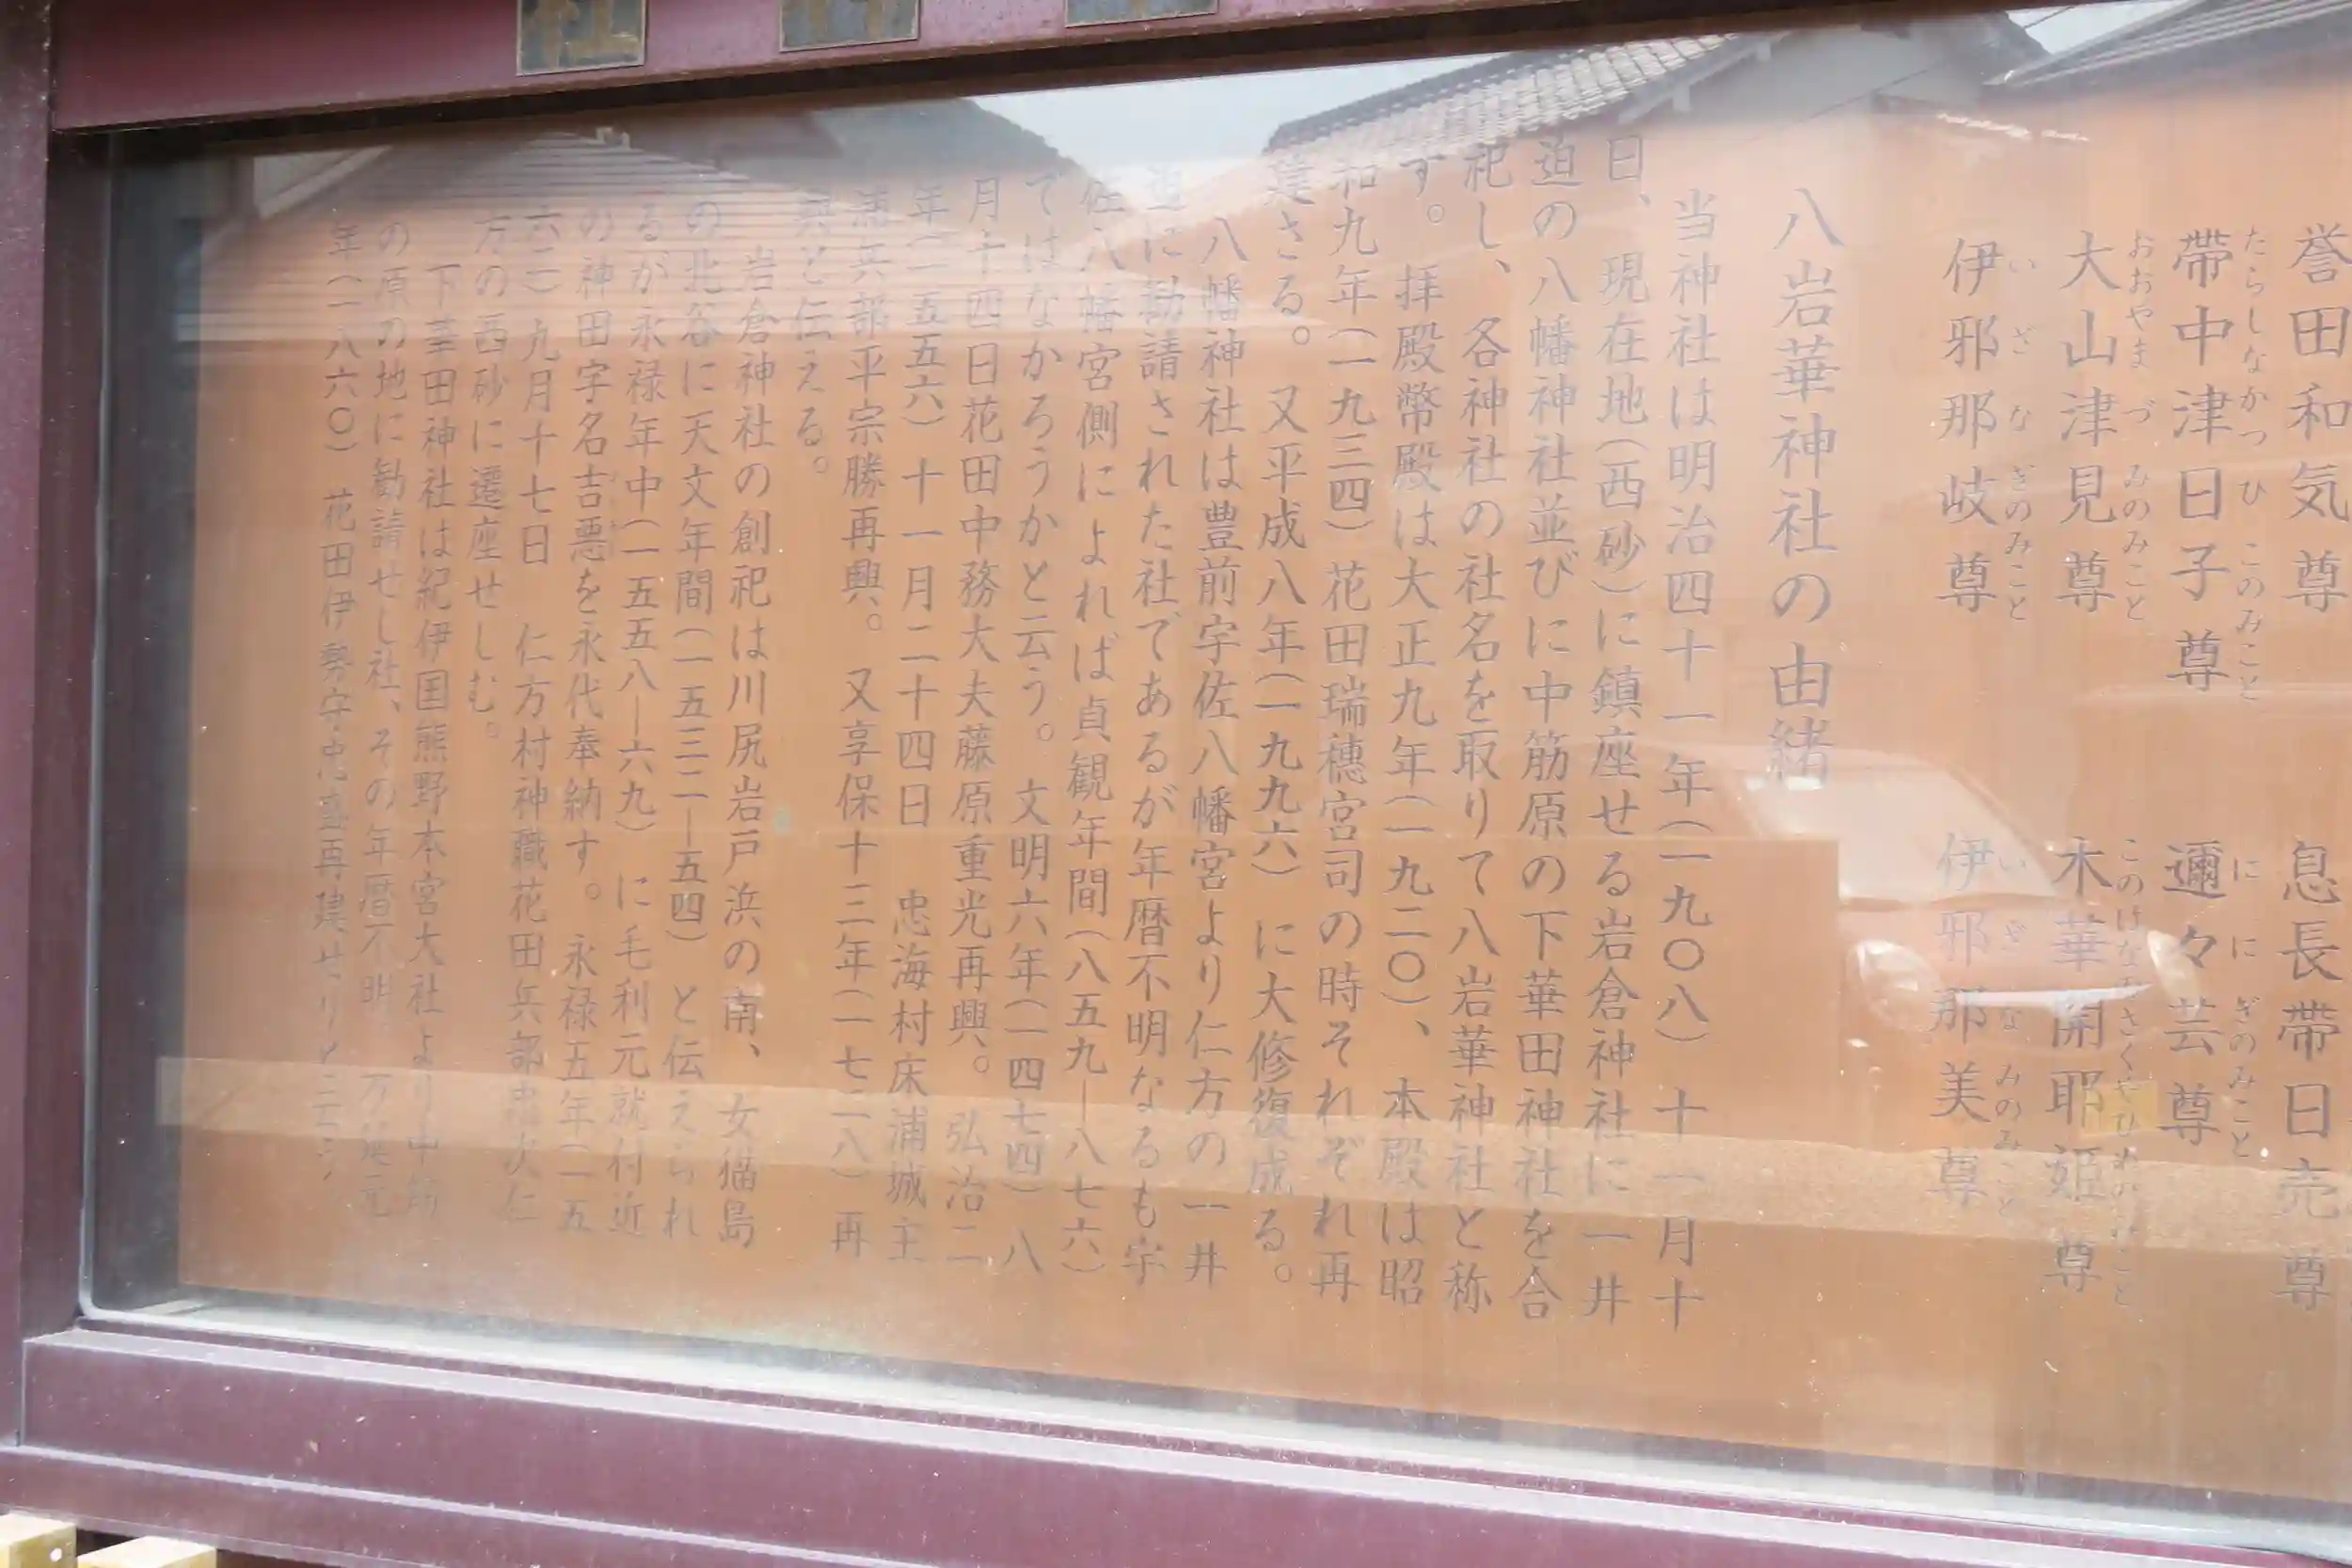 誉田和気尊
息長帯日売尊
たらしなかつひこのみこと
帯中津日子尊
ににぎのみこと
邇々芸尊
おおやまづみのみこと
大山津見尊
木華開耶姫尊
いざなぎのみこと
伊邪那岐尊
いざなみのみこと
伊邪那美尊
八岩華神社の由緒
当神社は明治四十一年(一九〇八)十一月十
日、現在地(西砂)に鎮座せる岩倉神社に一井
迫の八幡神社並びに中筋原の下華田神社を合
祀し、各神社の社名を取りて八岩華神社と称
す。拝殿幣殿は大正九年(一九二〇)、本殿は昭
和九年(一九三四)花田瑞穂宮司の時それぞれ再
建さる。又平成八年(一九九六)に大修復成る。
八幡神社は豊前宇佐八幡宮より仁方の一井
迫に勧請された社であるが年暦不明なるも宇
佐八幡宮側によれば貞観年間(八五九―八七六)
ではなかろうかと云う。文明六年(一四七四)八
月十四日花田中務大夫藤原重光再興。弘治二
年(一五五六)十一月二十四日 忠海村床浦城主
浦兵部平宗勝再興。又享保十三年(一七二八)再
興と伝える。
岩倉神社の創祀は川尻岩戸浜の南、女猫島
の北谷に天文年間(一五三二―五四)と伝えられ
るが永禄年中(一五五八―六九)に毛利元就付近
の神田字名吉悪を永代奉納す。永禄五年(一五
六二)九月十七日 仁方村神職花田兵部忠次仁
方の西砂に遷座せしむ。
下華田神社は紀伊国熊野本宮大社より中筋
の原の地に勧請せし社、その年暦不明。万延元
年(一八六〇)花田伊勢守忠盛再建せりと云う